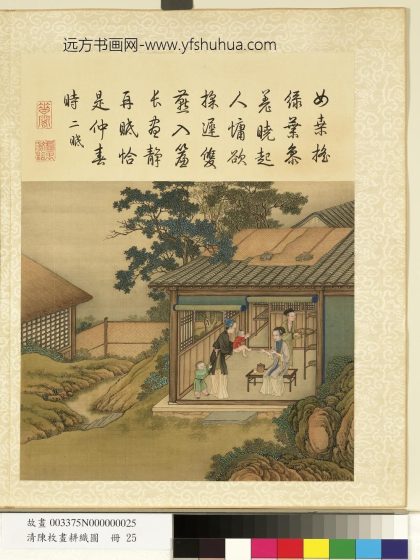 远方书画网-www.yfshuhua.com
女桑搖
綠葉參
差曉起
人慵欲
採遲雙
燕入簾
長晝靜
再眠恰
是仲春
時 二眠
故畫 003375N000000025
清陳枚畫耕織圖 冊 25